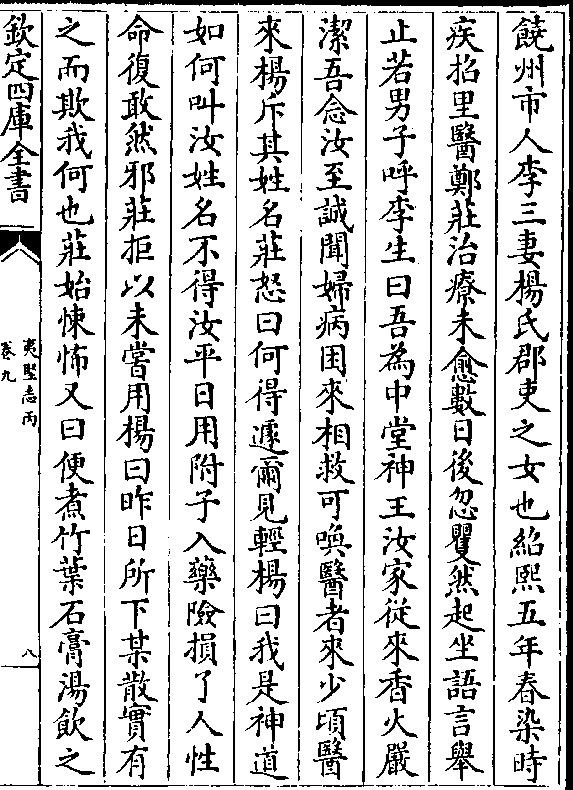 饒州市人李三妻楊氏郡吏之女也紹熙五年春染時
疾招里醫鄭莊治療未愈數日後忽矍然起坐語言舉
止若男子呼李生曰吾為中堂神王汝家從來香火嚴
潔吾念汝至誠聞婦病困來相救可喚醫者來少頃醫
來楊斥其姓名莊怒曰何得遽爾見輕楊曰我是神道
如何叫汝姓名不得汝平日用附子入藥險損了人性
命復敢然邪莊拒以未嘗用楊曰昨日所下某散實有
之而欺我何也莊始悚怖又曰便煮竹葉石膏湯飲之
欽定四庫全書
夷堅志丙
卷九
八